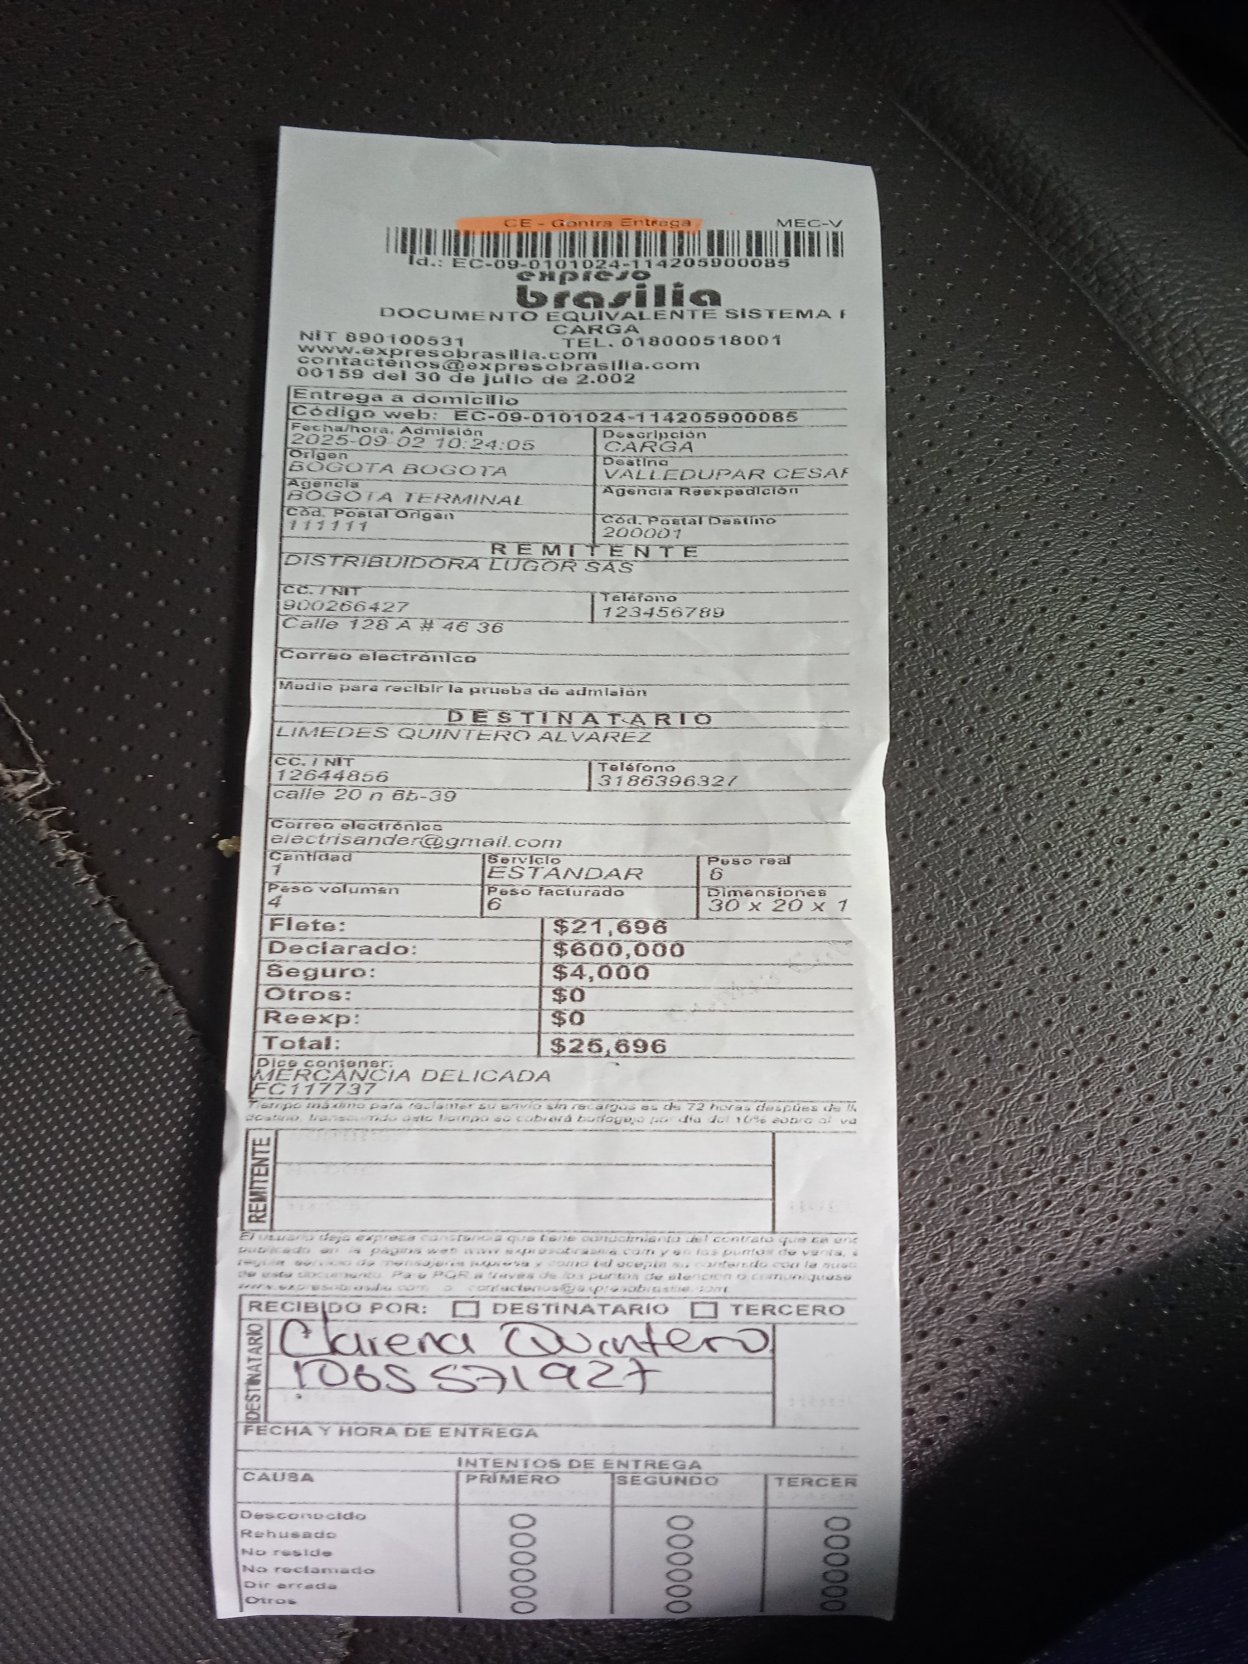 CE - Contra Entrega MEC-V
Id.: EC-09-0101024-114205900085
expreso
brasilia
DOCUMENTO EQUIVALENTE SISTEMA
CARGA
NIT 890100531 TEL. 018000518001
www.expresobrasilia.com
contactenos@expresobrasilia.com
00159 del 30 de julio de 2.002
Entrega a domicilio
Código web: EC-09-0101024-114205900085
Fecha/hora. Admisión Descripción
2025-09-02 10:24:05 CARGA
Origen Destino
BOGOTA BOGOTA VALLEDUPAR CESAR
Agencia Agencia Reexpedición
BOGOTA TERMINAL
Cód. Postal Origen Cód. Postal Destino
111111 200001
REMITENTE
DISTRIBUIDORA LUGOR SAS
CC. / NIT Teléfono
900266427 123456789
Calle 128 A # 46 36
Correo electrónico
Medio para recibir la prueba de admisión
DESTINATARIO
LIMEDES QUINTERO ALVAREZ
CC. / NIT Teléfono
12644856 3186396327
calle 20 n 6b-39
Correo electrónico
electrisander@gmail.com
Cantidad Servicio Peso real
1 ESTANDAR 6
Peso volumen Peso facturado Dimensiones
4 6 30 x 20 x 1
Flete: $21,696
Declarado: $600,000
Seguro: $4,000
Otros: $0
Reexp: $0
Total: $25,696
Dice contener:
MERCANCIA DELICADA
FC117737
Tiempo máximo para reclamar su envío sin recargos es de 72 horas después de
destino, transcurrido este tiempo se cobrará bodegaje por día del 10% sobre el va
REMITENTE
El usuario deja expresa constancia que tiene conocimiento del contrato que se
publicado en la página web www.expresobrasilia.com y en los puntos de venta,
regula servicio de mensajería expresa y como tal acepta su contenido con la
de este documento. Para PQR a través de los puntos de atención o comuníquese
www.expresobrasilia.com o contactenos@expresobrasilia.com
RECIBIDO POR: DESTINATARIO TERCERO
DESTINATARIO
Clarena Quintero
1065571927
FECHA Y HORA DE ENTREGA
INTENTOS DE ENTREGA
CAUSA PRIMERO SEGUNDO TERCER
Desconocido
Rehusado
No reside
No reclamado
Dir errada
Otros